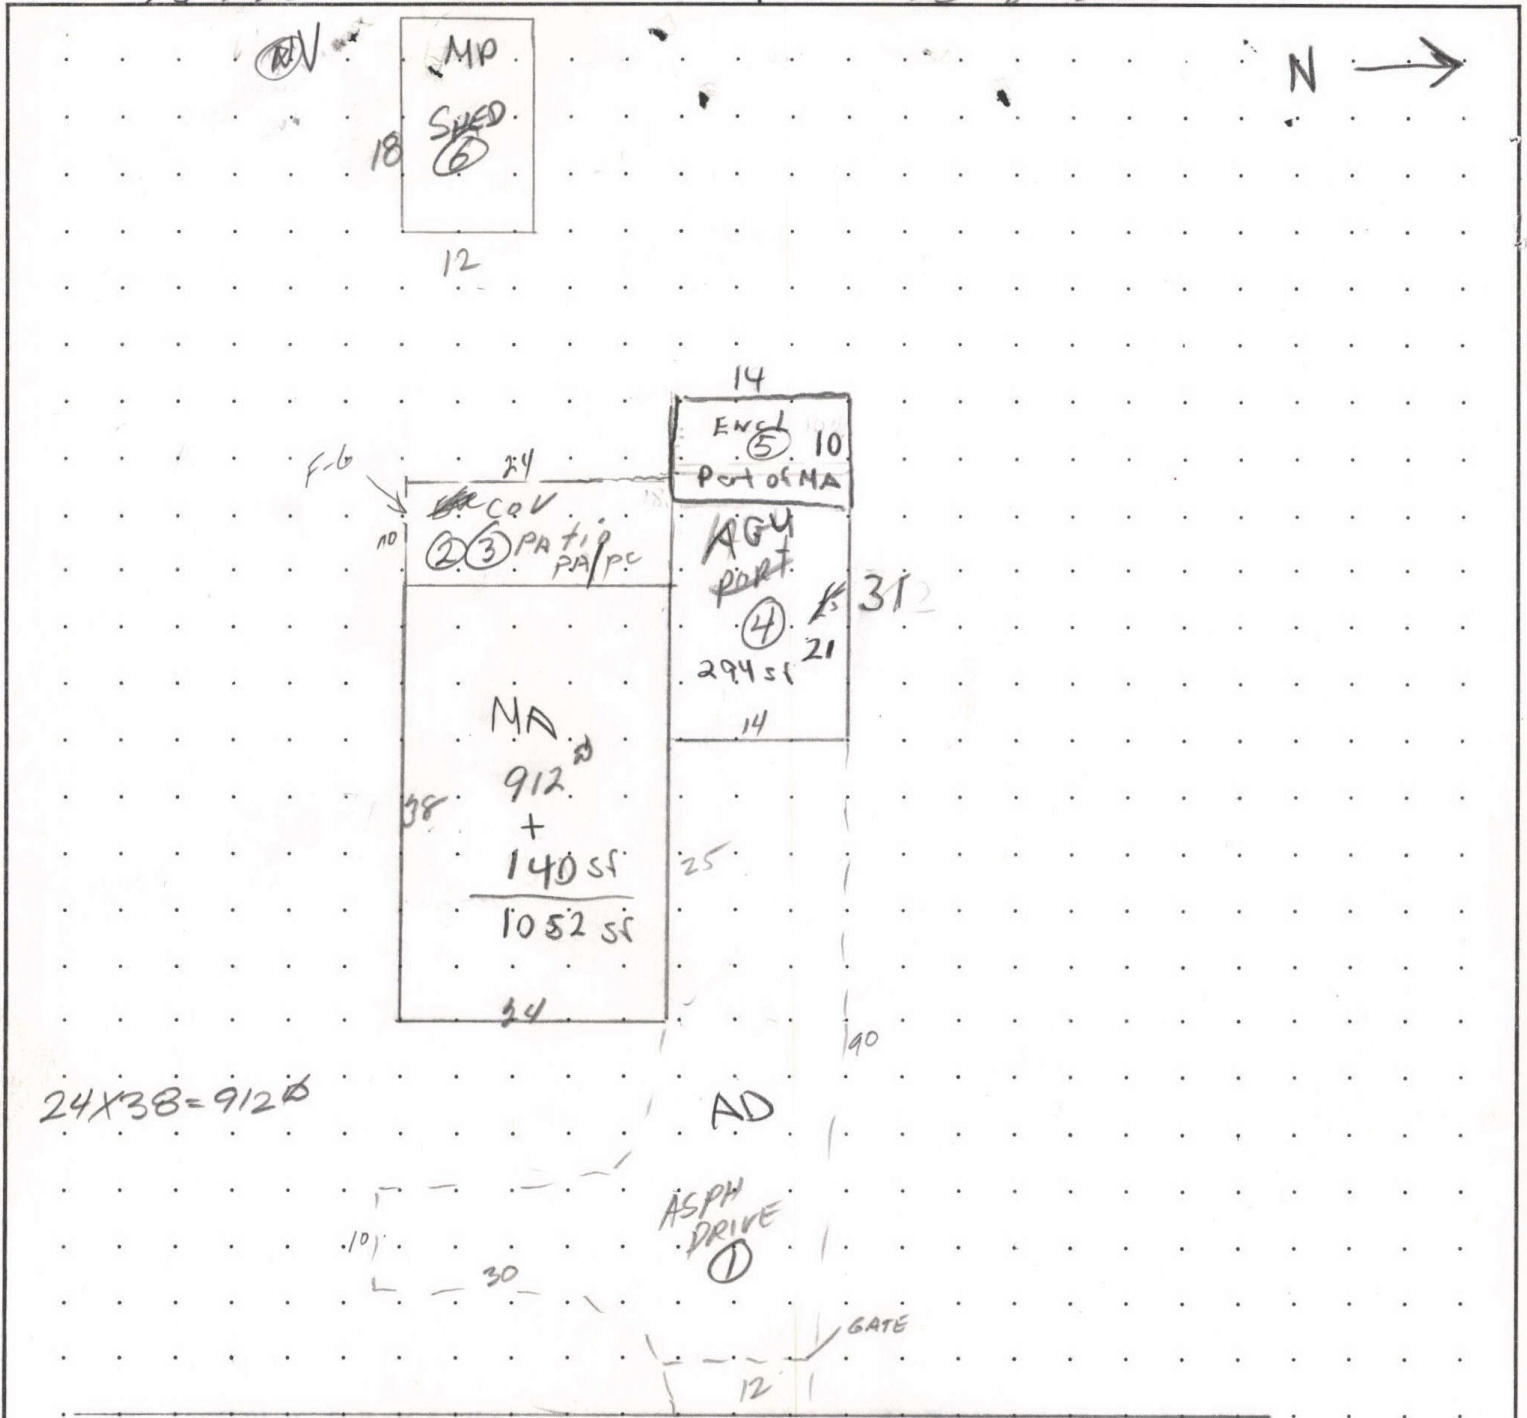 NV
MP
SHED
6
18
12
N
14
ENCL
5
10
Part of MA
F-6
24
COV
10
2 3 PATIO
PA/PC
AGU
PORT
4
31
21
294 sf
14
MA
912
+
140 sf
1052 sf
38
25
24
90
24X38=912
AD
ASPH
DRIVE
1
10
30
GATE
12